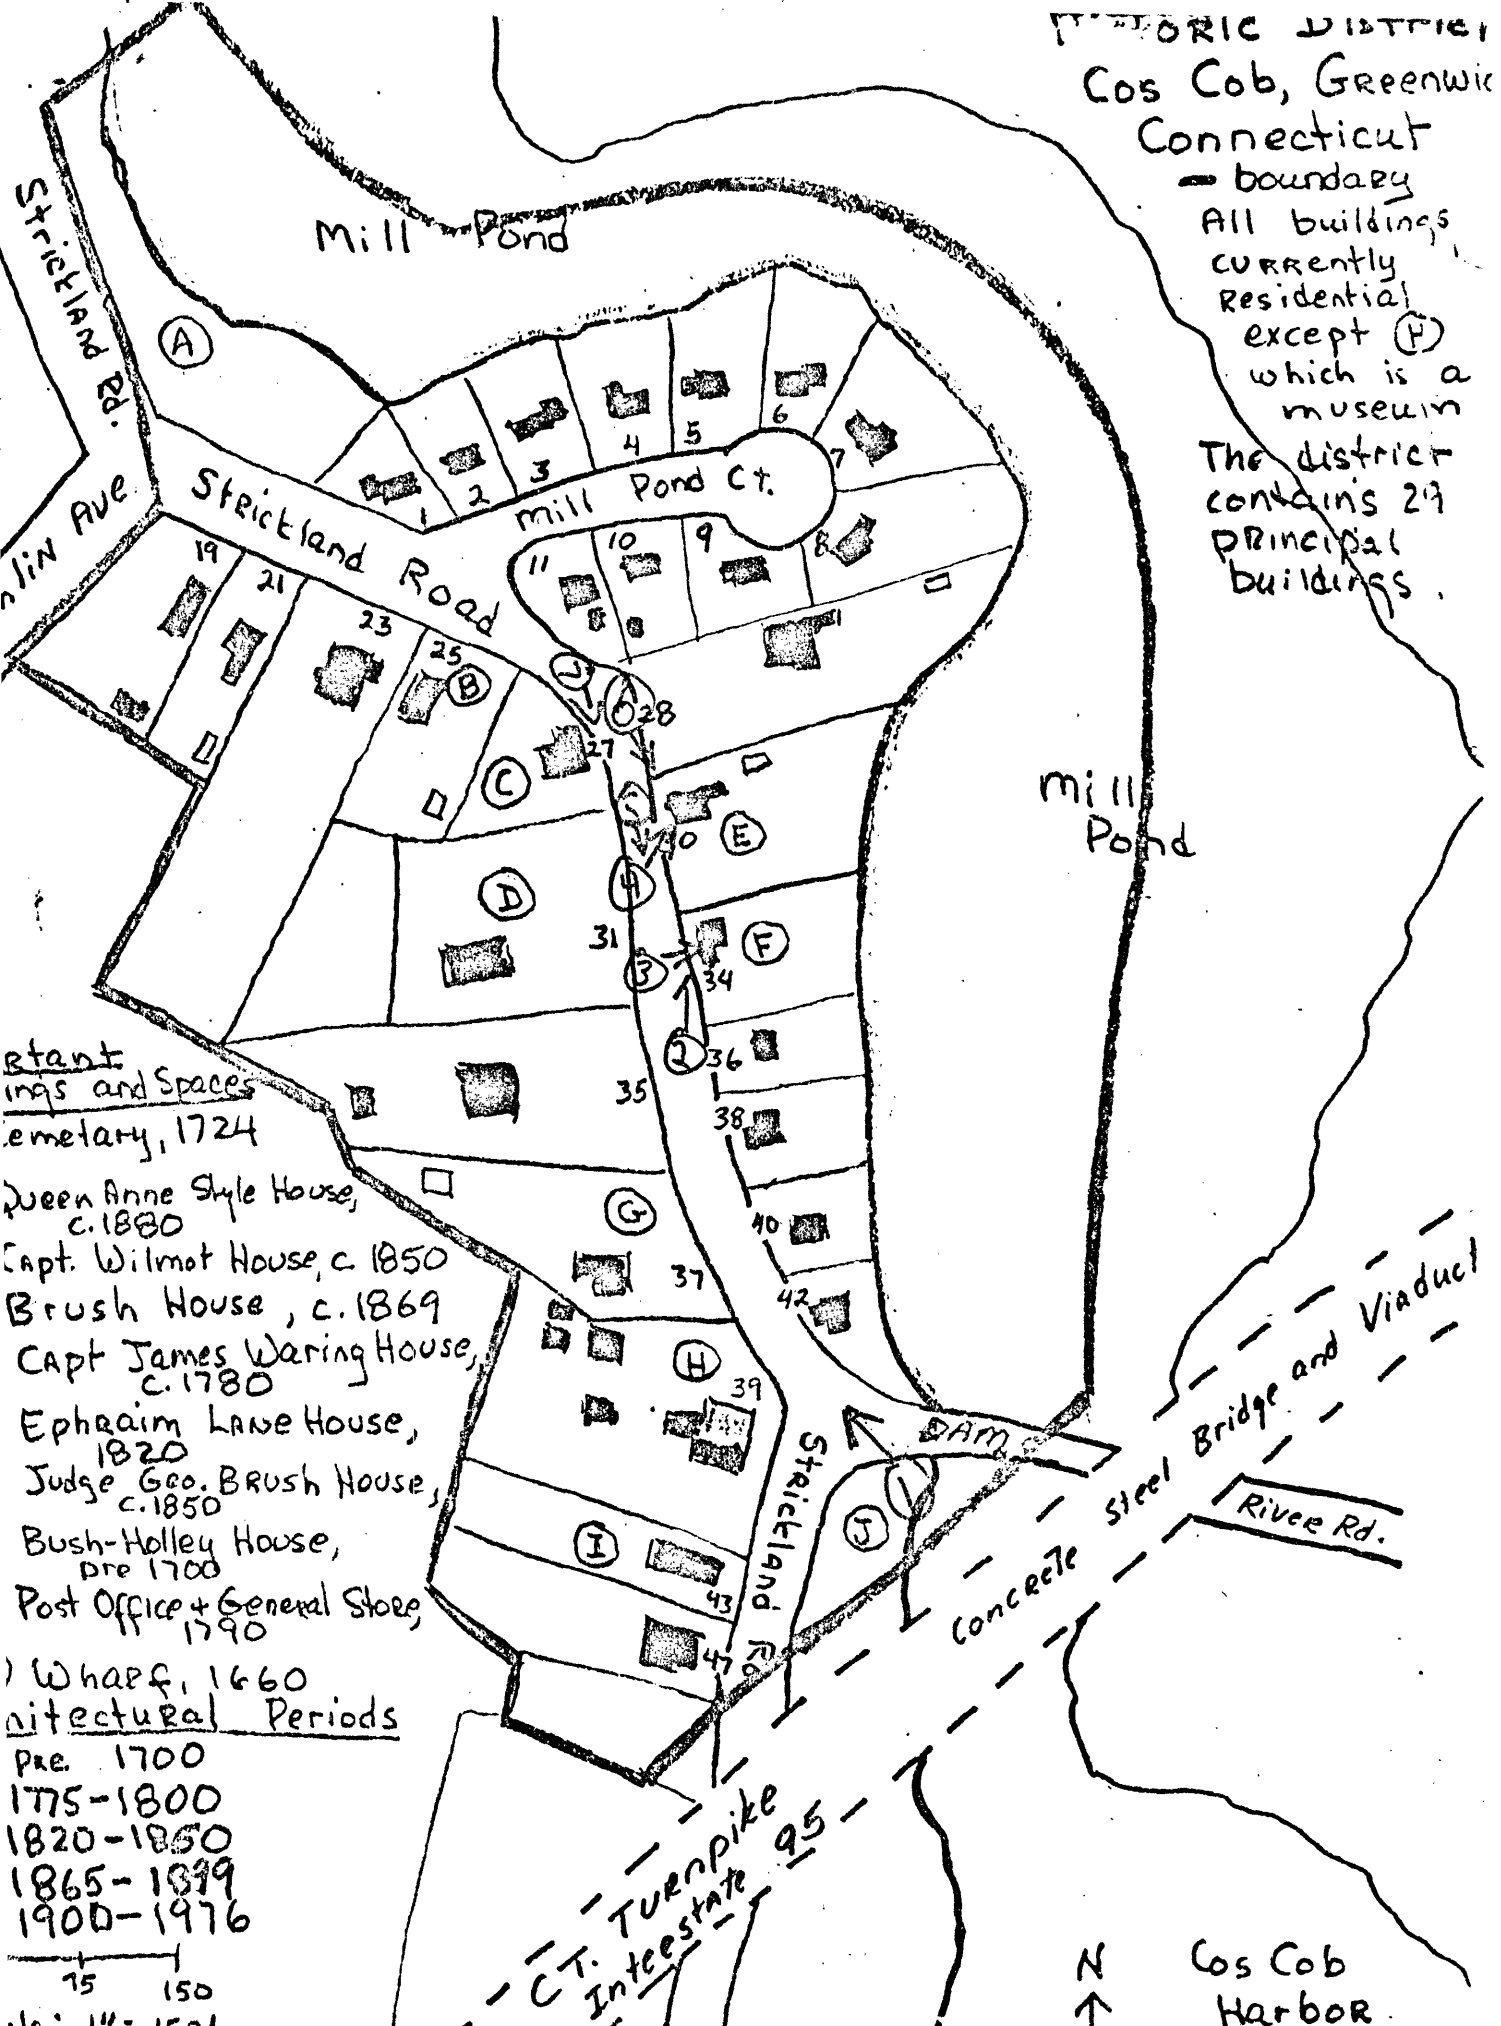 DISTRICT
Cos Cob, Greenwic
Connecticut
boundary
All buildings
currently
Residential
except (H)
which is a
museum
The district
contains 29
principal
buildings.
Strickland Rd.
Mill Pond
A
Ave
Strickland Road
Mill Pond Ct.
1
2
3
4
5
6
7
8
9
10
11
19
21
23
25
B
27
28
C
E
D
4
31
3
F
34
2
36
35
38
G
37
40
42
H
39
I
43
47
J
Mill
Pond
DAM
Strickland Rd
Concrete Steel Bridge and Viaduct
River Rd.
C T. Turnpike
Interstate 95
ings and Spaces
emetary, 1724
Queen Anne Style House,
c. 1880
Capt. Wilmot House, c. 1850
Brush House, c. 1869
Capt James Waring House,
c. 1780
Ephraim Lane House,
1820
Judge Geo. Brush House,
c. 1850
Bush-Holley House,
pre 1700
Post Office + General Store,
1790
Wharf, 1660
nitectural Periods
Pre. 1700
1775-1800
1820-1860
1865-1899
1900-1976
75 150
N
Cos Cob
Harbor